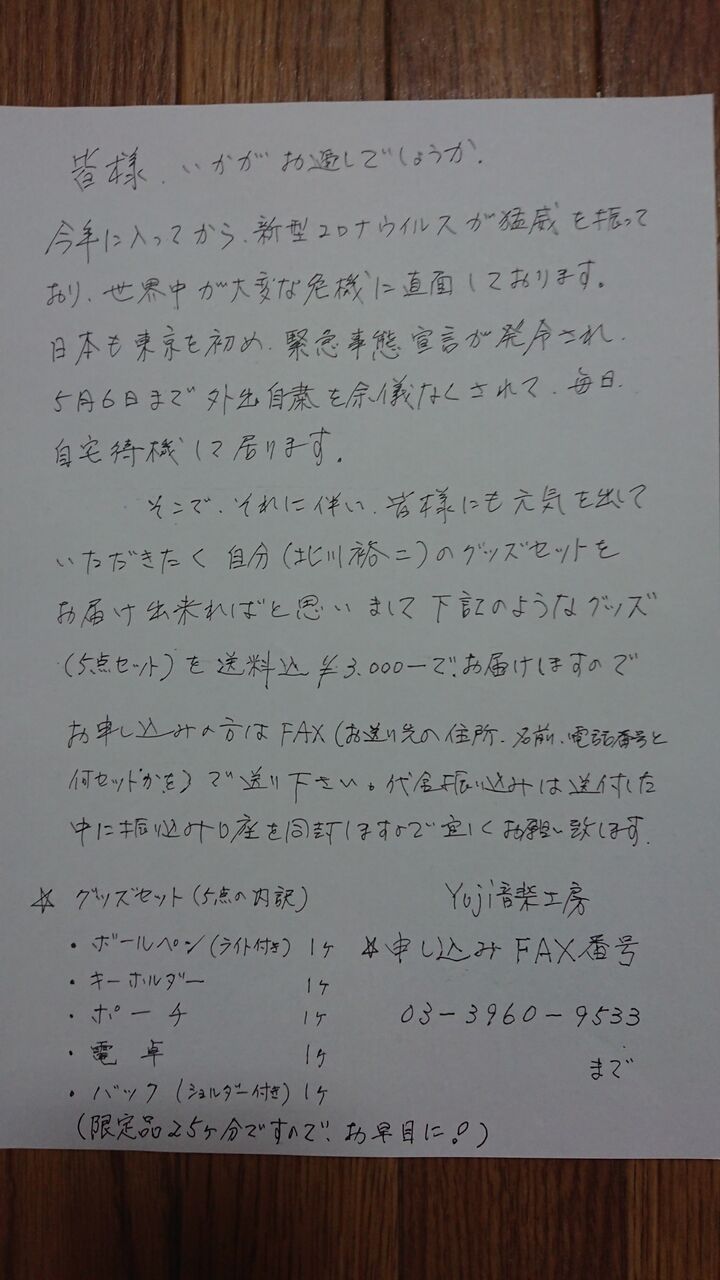 皆様、いかがお過しでしょうか.
今年に入ってから、新型コロナウイルスが猛威を振って
おり、世界中が大変な危機に直面しております。
日本も東京を初め、緊急事態宣言が発令され、
5月6日まで外出自粛を余儀なくされて、毎日、
自宅待機して居ります。
そこで、それに伴い、皆様にも元気を出して
いただきたく自分(北川裕二)のグッズセットを
お届け出来ればと思いまして下記のようなグッズ
(5点セット)を送料込¥3.000ーで、お届けしますので
お申し込みの方はFAX(お送り先の住所、名前、電話番号と
何セットかを)で送り下さい。代金振り込みは送付した
中に振り込み口座を同封しますので宜しくお願い致します.
☆ グッズセット(5点の内訳) Yuji音楽工房
・ボールペン(ライト付き) 1ヶ ☆申し込みFAX番号
・キーホルダー 1ヶ
・ポーチ 1ヶ 03-3960-9533
・電卓 1ヶ まで
・バック(ショルダー付き) 1ヶ
(限定品25ヶ分ですので、お早目に!)